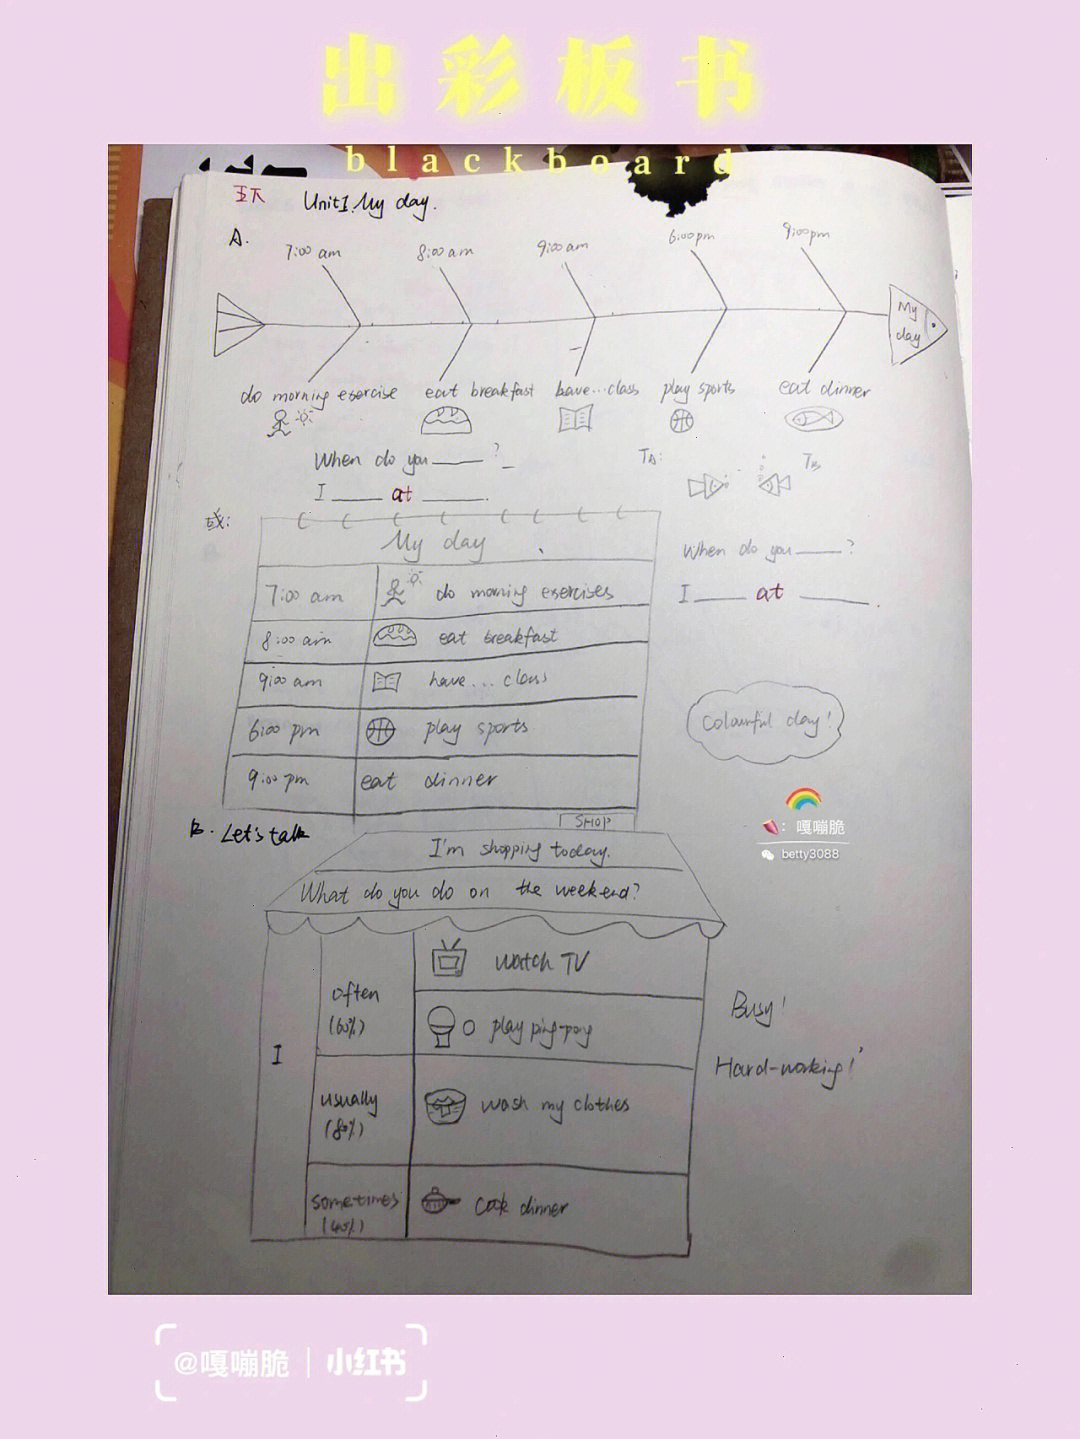 出彩板书
blackboard
五下 Unit1. My day.
A.
7:00 am 8:00 am 9:00 am 6:00 pm 9:00 pm
My day
do morning exercise eat breakfast have...class play sports eat dinner
When do you ____?
I ____ at ____.
TA: TB
或:
My day
7:00 am do morning exercises
8:00 am eat breakfast
9:00 am have... class
6:00 pm play sports
9:00 pm eat dinner
When do you ____?
I ____ at ____.
Colourful day!
: 嘎嘣脆
betty3088
B. Let's talk
SHOP
I'm shopping today.
What do you do on the weekend?
I
often (60%)
watch TV
play ping-pong
usually (80%)
wash my clothes
sometimes (40%)
cook dinner
Busy!
Hard-working!
@嘎嘣脆 | 小红书